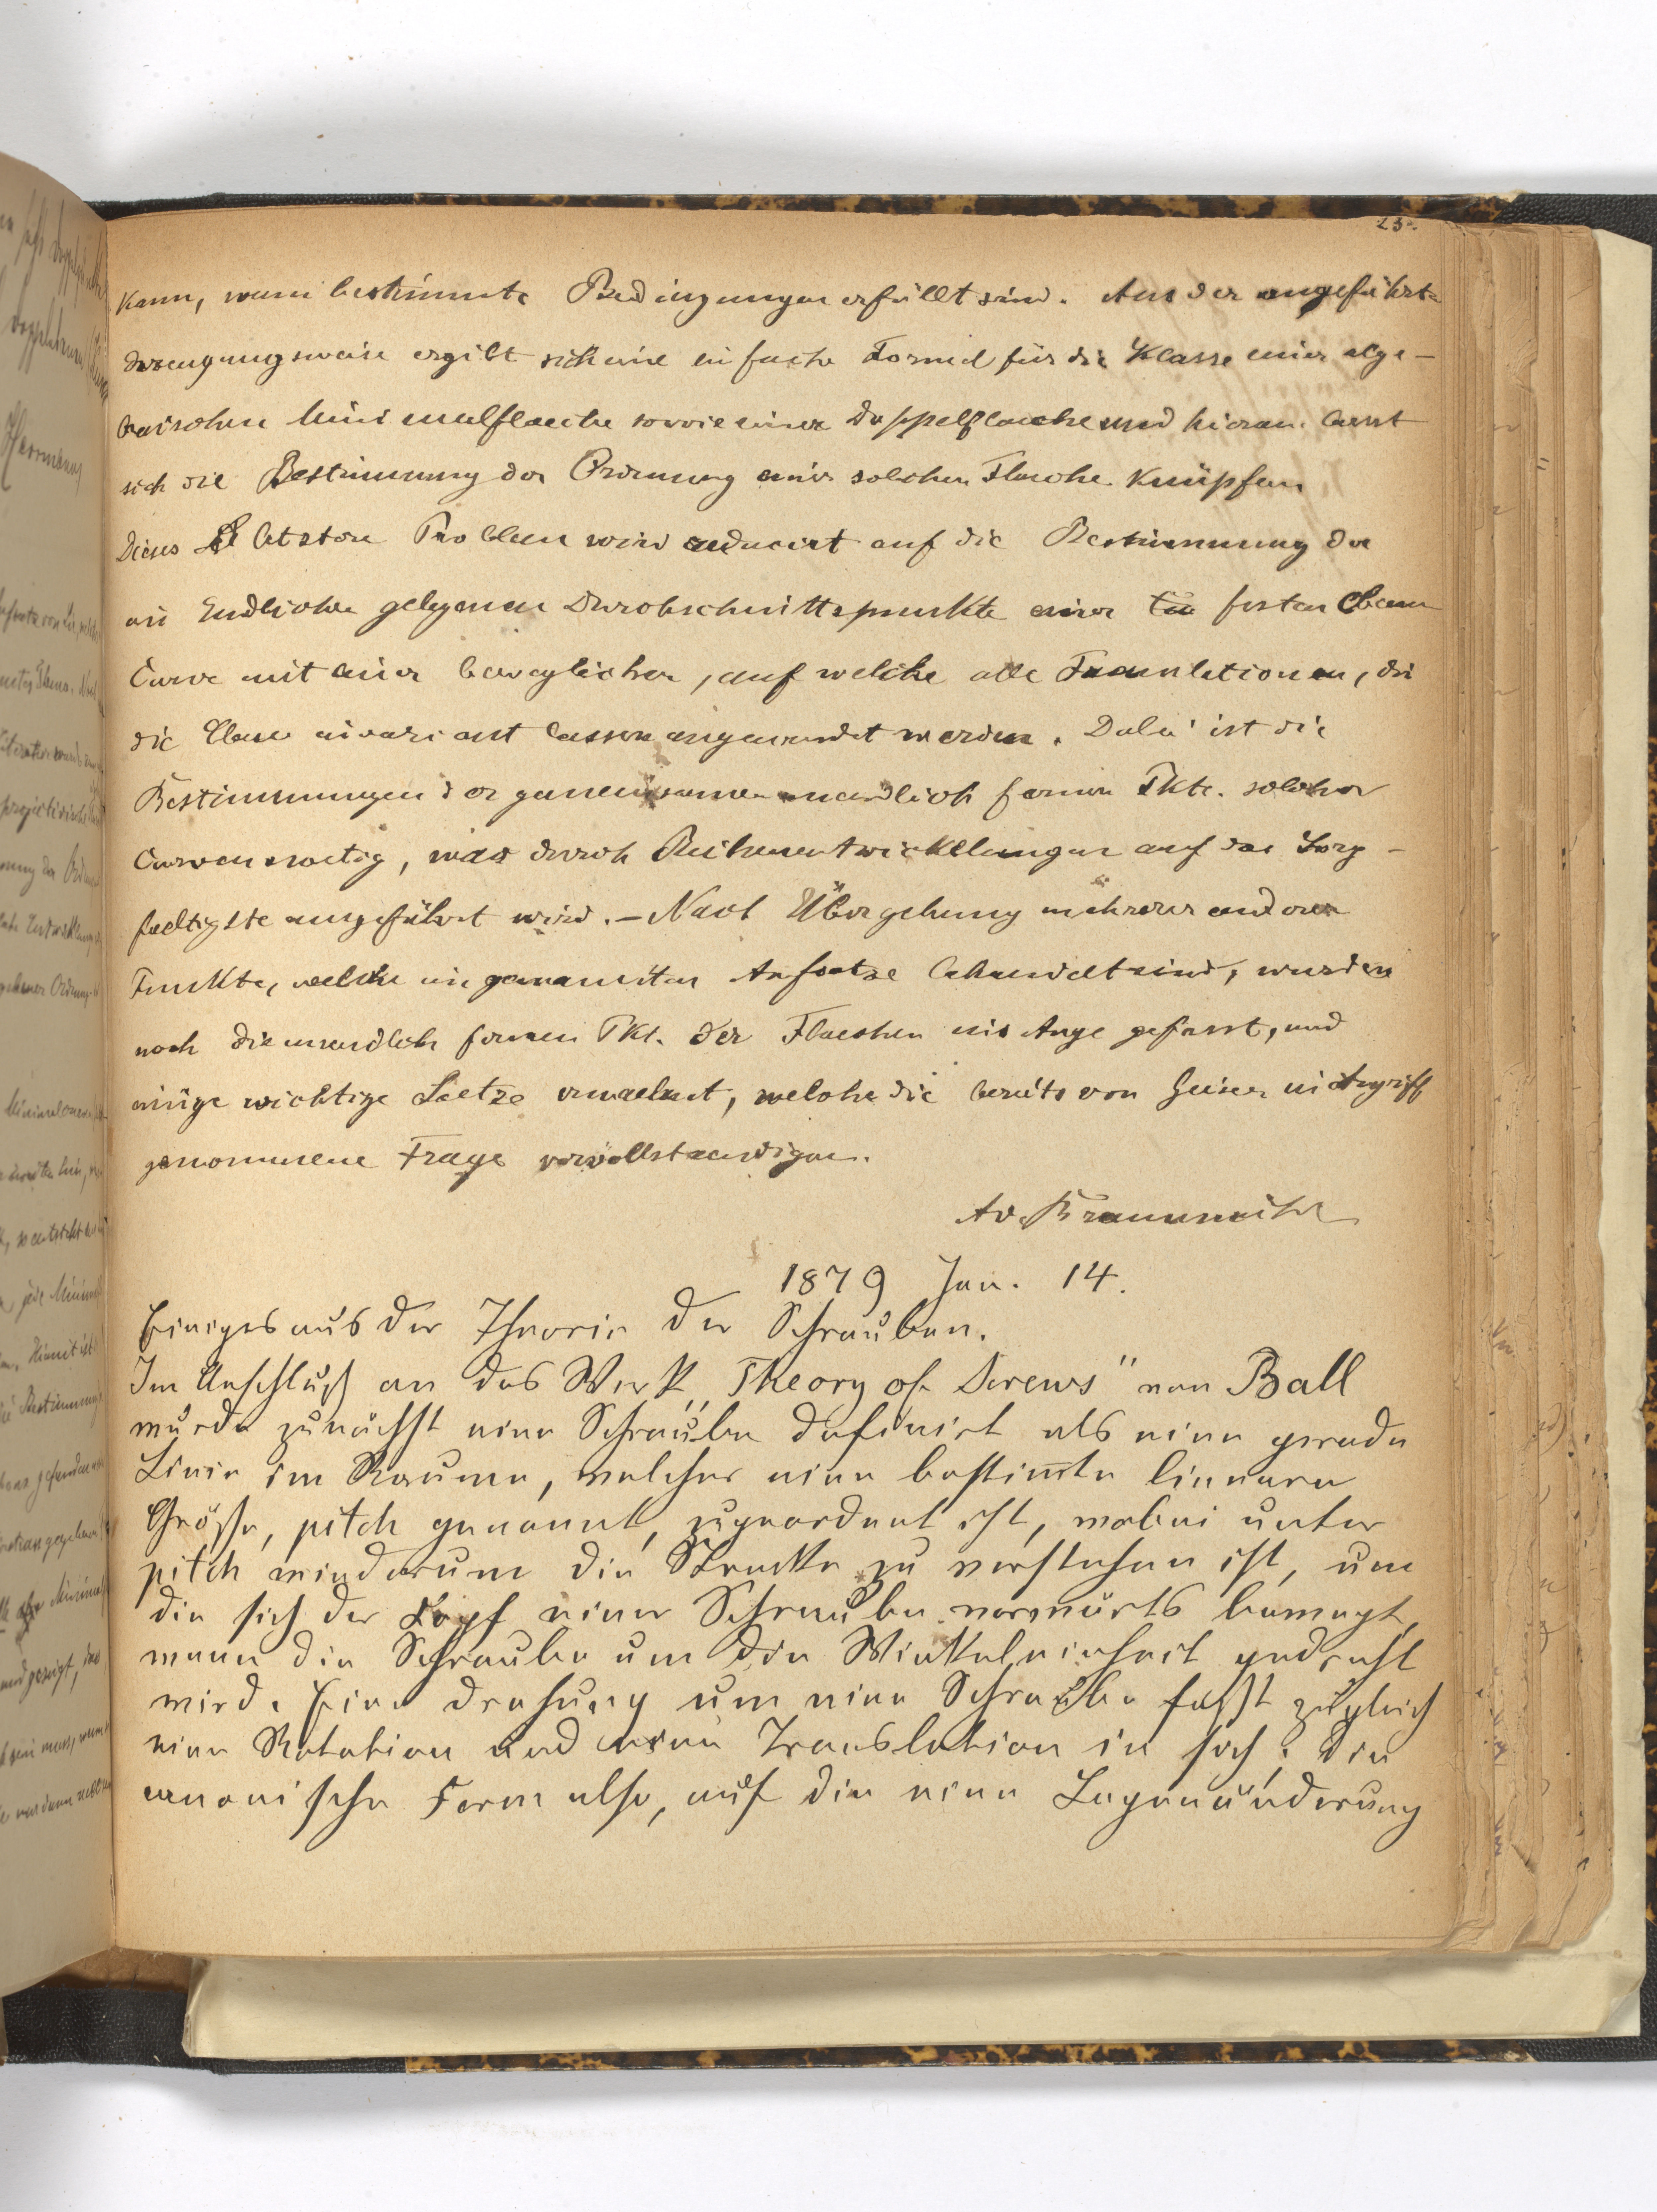 23.
kann, wenn bestimmte Bedingungen erfüllt sind. Aus der angeführten
Erzeugungsweise ergibt sich eine einfache Formel für die Klasse einer alge-
braischen Minimalflaeche sowie einer Doppelflaeche und hieran laesst
sich die Bestimmung der Ordnung einer solchen Flaeche knüpfen
Dieses letztere Problem wird reducirt auf die Bestimmung der
im Endlichen gelegenen Durchschnittspunkte einer festen ebenen
Curve mit einer beweglichen, auf welche alle Translationen, die
die Ebene invariant lassen angewendet werden. Dabei ist die
Bestimmungen der gemeinsamen unendlich fernen Pkte. solcher
Curven noetig, was durch Reihenentwickelungen auf das Sorg-
faeltigste ausgeführt wird. - Nach Übergehung mehrerer anderer
Punkte, welche im genannten Aufsatze behandelt sind, wurden
noch die unendlich fernen Pkt. der Flaechen ins Auge gefasst, und
einige wichtige Saetze erwaehnt, welche die bereits von Geiser in Angriff
genommene Frage vervollstaendigen.
A v. Braunmühl
1879 Jan. 14.
Einiges aus der Theorie der Schrauben.
Im Anschluß an das Werk „Theory of Screws" von Ball
wurde zunächst eine Schraube definirt als eine gerade
Linie im Raume, welcher eine bestim̅te lineare
Größe, pitch genannt, zugeordnet ist, wobei unter
pitch wiederum die Strecke zu verstehen ist, um
die sich der Kopf einer Schraube vorwärts bewegt,
wenn die Schraube um die Winkeleinheit gedreht
wird. Eine Drehung um eine Schraube faßt zugleich
eine Rotation und eine Translation in sich; die
canonische Form also, auf die eine Lagenänderung